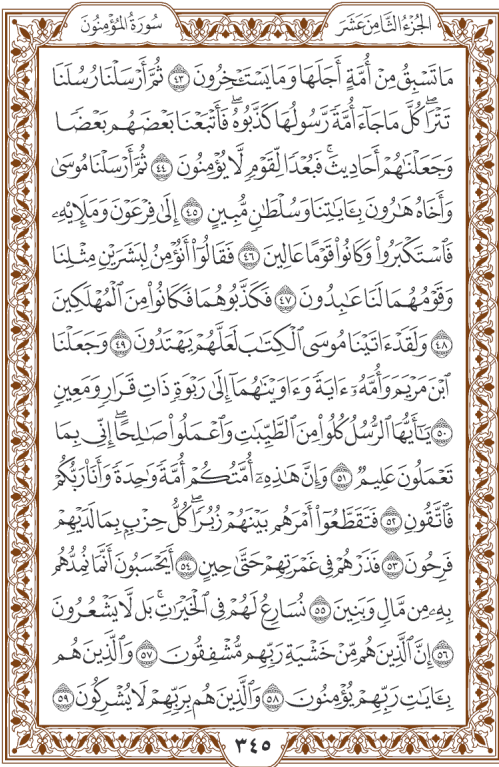 الجزء الثامن عشر
سورة المؤمنون
مَا تَسْبِقُ مِنْ أُمَّةٍ أَجَلَهَا وَمَا يَسْتَـْٔخِرُونَ ٤٣ ثُمَّ أَرْسَلْنَا رُسُلَنَا
تَتْرَا ۖ كُلَّ مَا جَآءَ أُمَّةً رَّسُولُهَا كَذَّبُوهُ ۖ فَأَتْبَعْنَا بَعْضَهُم بَعْضًا
وَجَعَلْنَٰهُمْ أَحَادِيثَ ۚ فَبُعْدًا لِّقَوْمٍ لَّا يُؤْمِنُونَ ٤٤ ثُمَّ أَرْسَلْنَا مُوسَىٰ
وَأَخَاهُ هَٰرُونَ بِـَٔايَٰتِنَا وَسُلْطَٰنٍ مُّبِينٍ ٤٥ إِلَىٰ فِرْعَوْنَ وَمَلَإِي۟هِۦ
فَٱسْتَكْبَرُوا۟ وَكَانُوا۟ قَوْمًا عَالِينَ ٤٦ فَقَالُوٓا۟ أَنُؤْمِنُ لِبَشَرَيْنِ مِثْلِنَا
وَقَوْمُهُمَا لَنَا عَٰبِدُونَ ٤٧ فَكَذَّبُوهُمَا فَكَانُوا۟ مِنَ ٱلْمُهْلَكِينَ
٤٨ وَلَقَدْ ءَاتَيْنَا مُوسَى ٱلْكِتَٰبَ لَعَلَّهُمْ يَهْتَدُونَ ٤٩ وَجَعَلْنَا
ٱبْنَ مَرْيَمَ وَأُمَّهُۥٓ ءَايَةً وَءَاوَيْنَٰهُمَآ إِلَىٰ رَبْوَةٍ ذَاتِ قَرَارٍ وَمَعِينٍ
٥٠ يَٰٓأَيُّهَا ٱلرُّسُلُ كُلُوا۟ مِنَ ٱلطَّيِّبَٰتِ وَٱعْمَلُوا۟ صَٰلِحًا ۖ إِنِّى بِمَا
تَعْمَلُونَ عَلِيمٌ ٥١ وَإِنَّ هَٰذِهِۦٓ أُمَّتُكُمْ أُمَّةً وَٰحِدَةً وَأَنَا۠ رَبُّكُمْ
فَٱتَّقُونِ ٥٢ فَتَقَطَّعُوٓا۟ أَمْرَهُم بَيْنَهُمْ زُبُرًا ۖ كُلُّ حِزْبٍۭ بِمَا لَدَيْهِمْ
فَرِحُونَ ٥٣ فَذَرْهُمْ فِى غَمْرَتِهِمْ حَتَّىٰ حِينٍ ٥٤ أَيَحْسَبُونَ أَنَّمَا نُمِدُّهُم
بِهِۦ مِن مَّالٍ وَبَنِينَ ٥٥ نُسَارِعُ لَهُمْ فِى ٱلْخَيْرَٰتِ ۚ بَل لَّا يَشْعُرُونَ
٥٦ إِنَّ ٱلَّذِينَ هُم مِّنْ خَشْيَةِ رَبِّهِم مُّشْفِقُونَ ٥٧ وَٱلَّذِينَ هُم
بِـَٔايَٰتِ رَبِّهِمْ يُؤْمِنُونَ ٥٨ وَٱلَّذِينَ هُم بِرَبِّهِمْ لَا يُشْرِكُونَ ٥٩
٣٤٥